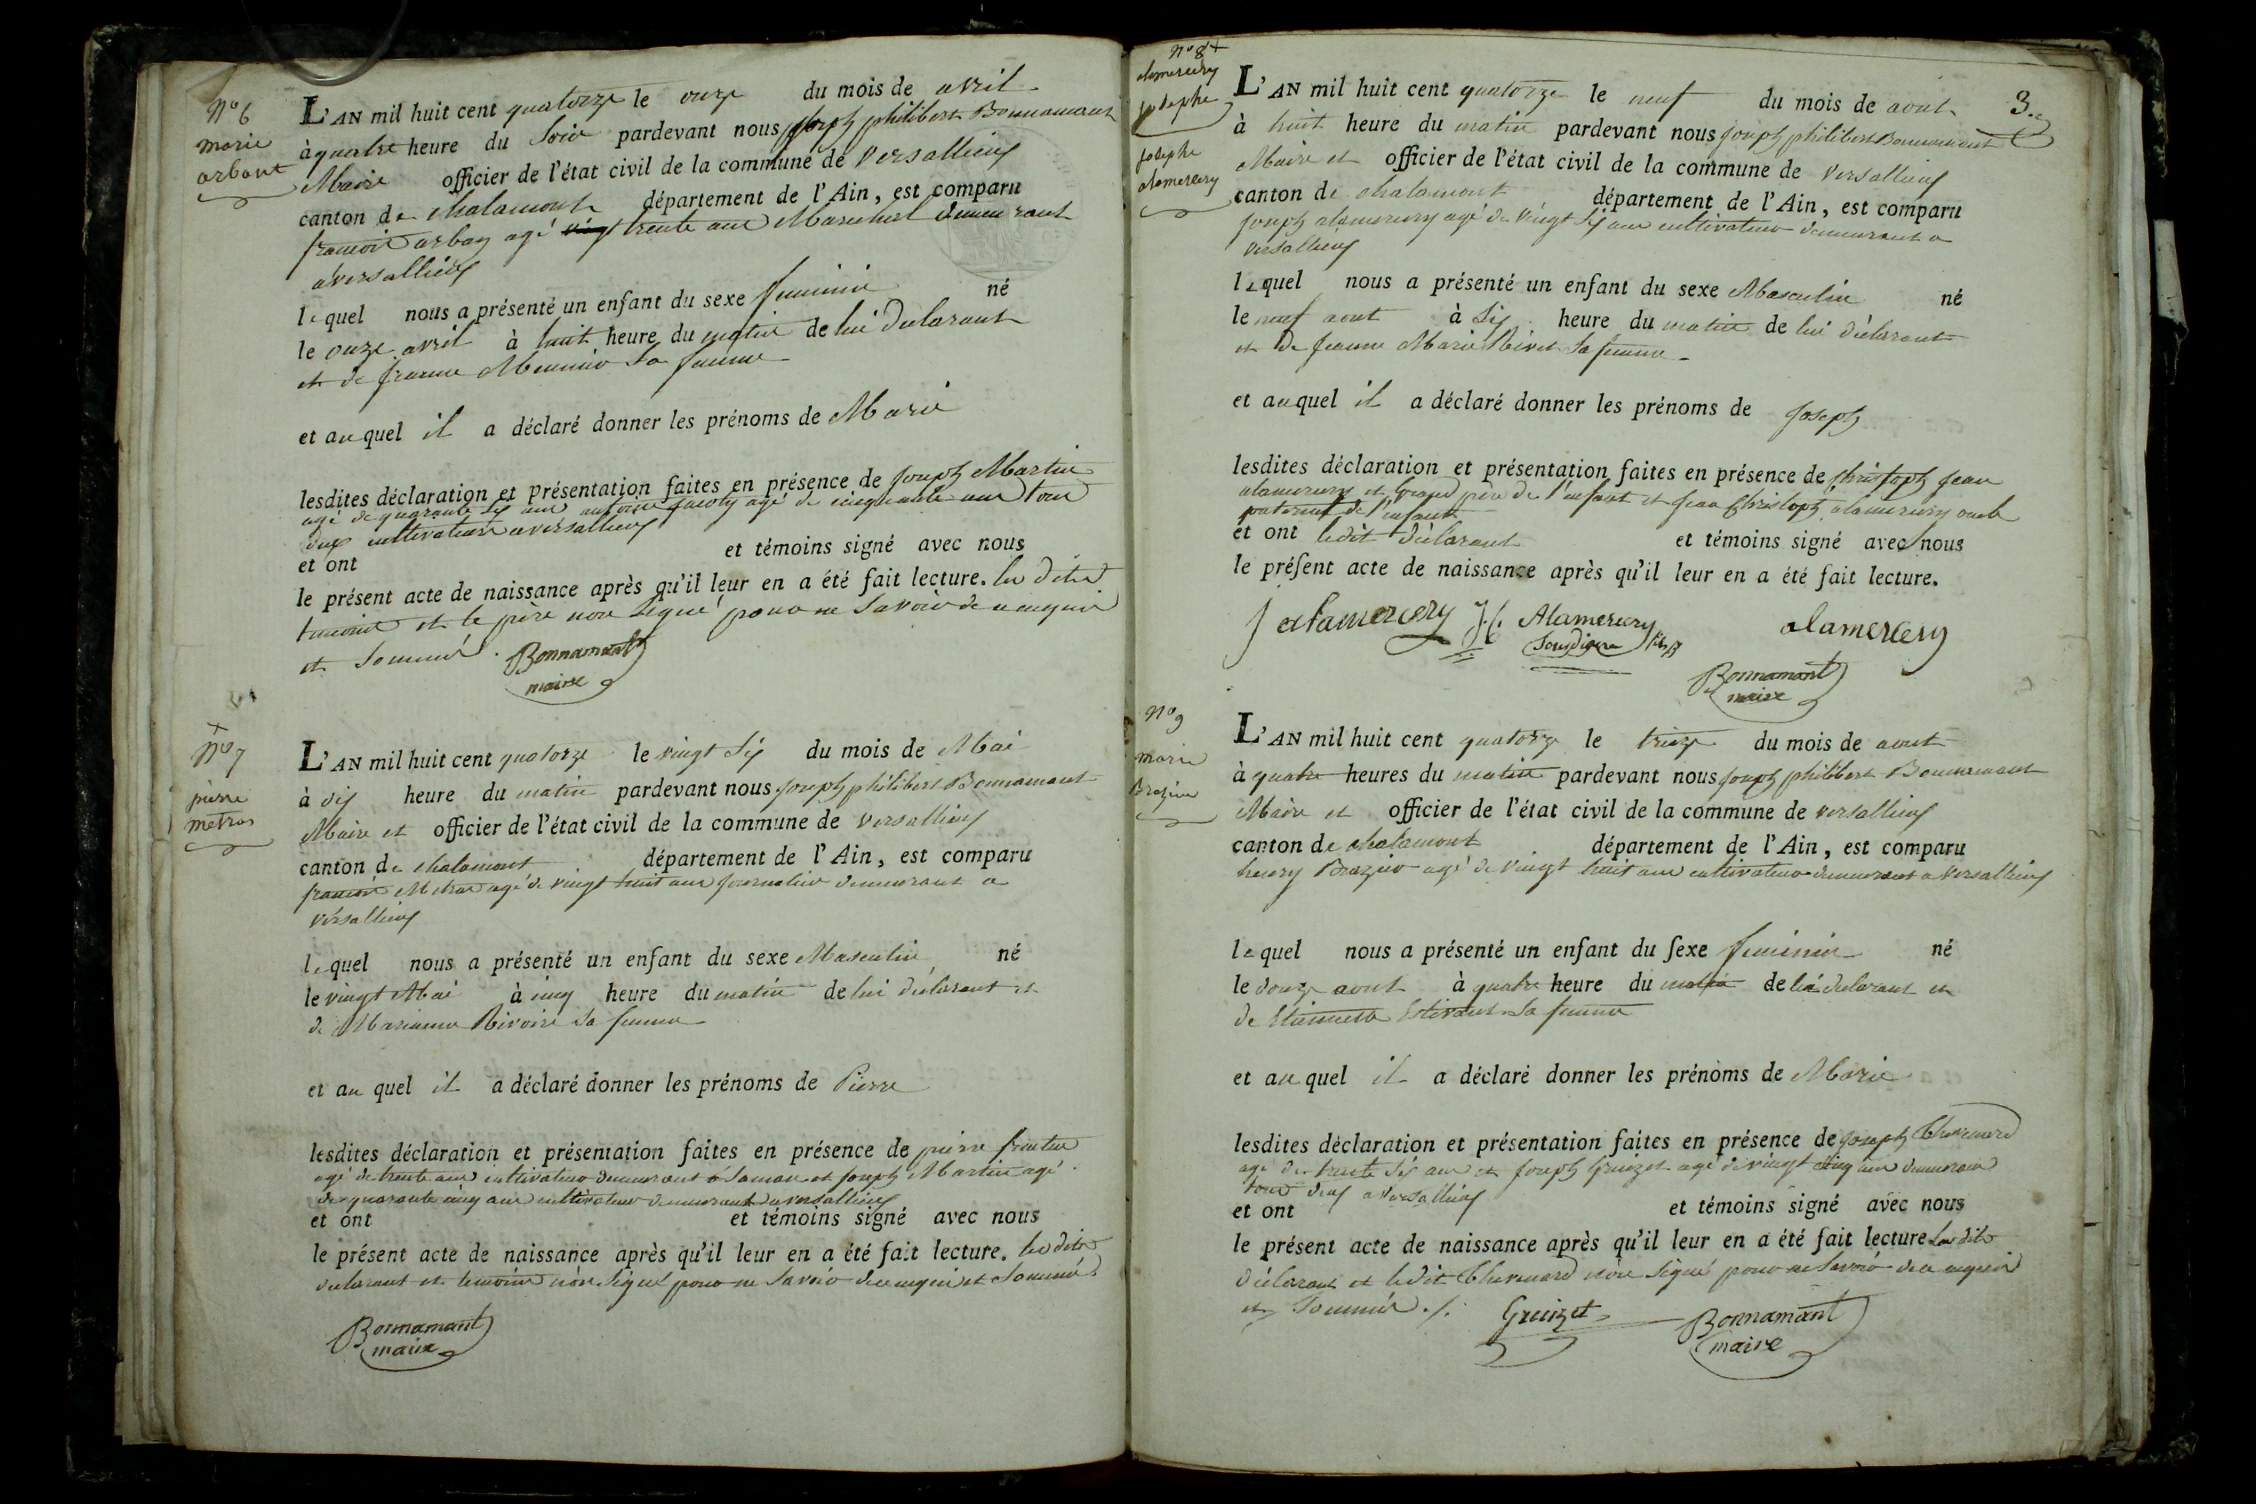 N° 6
marie
arbant
L'AN mil huit cent quatorze le onze du mois de avril
à quatre heure du soir pardevant nous joseph philibert Bonnamant
Maire officier de l'état civil de la commune de versallieux
canton de chalamont département de l'Ain, est comparu
francois arban agé trente ans Marechal demeurant
a versallieux
lequel nous a présenté un enfant du sexe feminin né
le onze avril à huit heure du matin de lui declarant
et de sa femme
et auquel il a déclaré donner les prénoms de Marie
lesdites déclaration et présentation faites en présence de joseph Martin
agé de quarante six ans agé de cinquante ans tous
deux cultivateurs a versallieux
et ont et témoins signé avec nous
le présent acte de naissance après qu'il leur en a été fait lecture. les dits
temoins et le père non signé pour ne savoir de ce enquis
et sommés.
Bonnamant
maire
N° 7
pierre
metras
L'AN mil huit cent quatorze le vingt six du mois de Mai
à dix heure du matin pardevant nous joseph philibert Bonnamant
Maire et officier de l'état civil de la commune de versallieux
canton de chalamont département de l'Ain, est comparu
francois Metras agé de vingt huit ans journalier demeurant a
versallieux
lequel nous a présenté un enfant du sexe Masculin né
le vingt Mai à cinq heure du matin de lui declarant et
de Marianne Rivoire sa femme
et au quel il a déclaré donner les prénoms de Pierre
lesdites déclaration et présentation faites en présence de pierre
agé de trente ans cultivateur demeurant a et joseph Martin agé
de quarante cinq ans cultivateur demeurant a versallieux
et ont et témoins signé avec nous
le présent acte de naissance après qu'il leur en a été fait lecture. les dits
declarant et temoins non signé pour ne savoir de ce enquis et sommés.
Bonnamant
maire
N° 8
alamercery
josephe
josephe
alamercery
3.
L'AN mil huit cent quatorze le neuf du mois de aout
à huit heure du matin pardevant nous joseph philibert Bonnamant
Maire et officier de l'état civil de la commune de versallieux
canton de chalamont département de l'Ain, est comparu
joseph alamercery agé de vingt six ans cultivateur demeurant a
versallieux
lequel nous a présenté un enfant du sexe Masculin né
le neuf aout à six heure du matin de lui déclarant
et de jeanne Marie Rivet sa femme
et auquel il a déclaré donner les prénoms de joseph
lesdites déclaration et présentation faites en présence de christoph jean
alamercery et grand père de l'enfant et jean christoph alamercery oncle
paternel de l'enfant
et ont ledit déclarant et témoins signé avec nous
le présent acte de naissance après qu'il leur en a été fait lecture.
J alamercery J.C. Alamercery alamercery
fils
Bonnamant
maire
N° 9
marie
Brazier
L'AN mil huit cent quatorze le treize du mois de aout
à quatre heures du matin pardevant nous joseph philibert Bonnamant
Maire et officier de l'état civil de la commune de versallieux
canton de chalamont département de l'Ain, est comparu
henry Brazier agé de vingt huit ans cultivateur demeurant a versallieux
lequel nous a présenté un enfant du sexe feminin né
le douze aout à quatre heure du matin de lui declarant et
de Etiennette Estivant sa femme
et auquel il a déclaré donner les prénoms de Marie
lesdites déclaration et présentation faites en présence de joseph Chevenard
agé de trente six ans et joseph Gruizet agé de vingt cinq ans demeurant
tous deux a versallieux
et ont et témoins signé avec nous
le présent acte de naissance après qu'il leur en a été fait lecture. les dits
déclarant et ledit Chevenard non signé pour ne savoir de ce enquis
et sommés ./.
Gruizet Bonnamant
maire